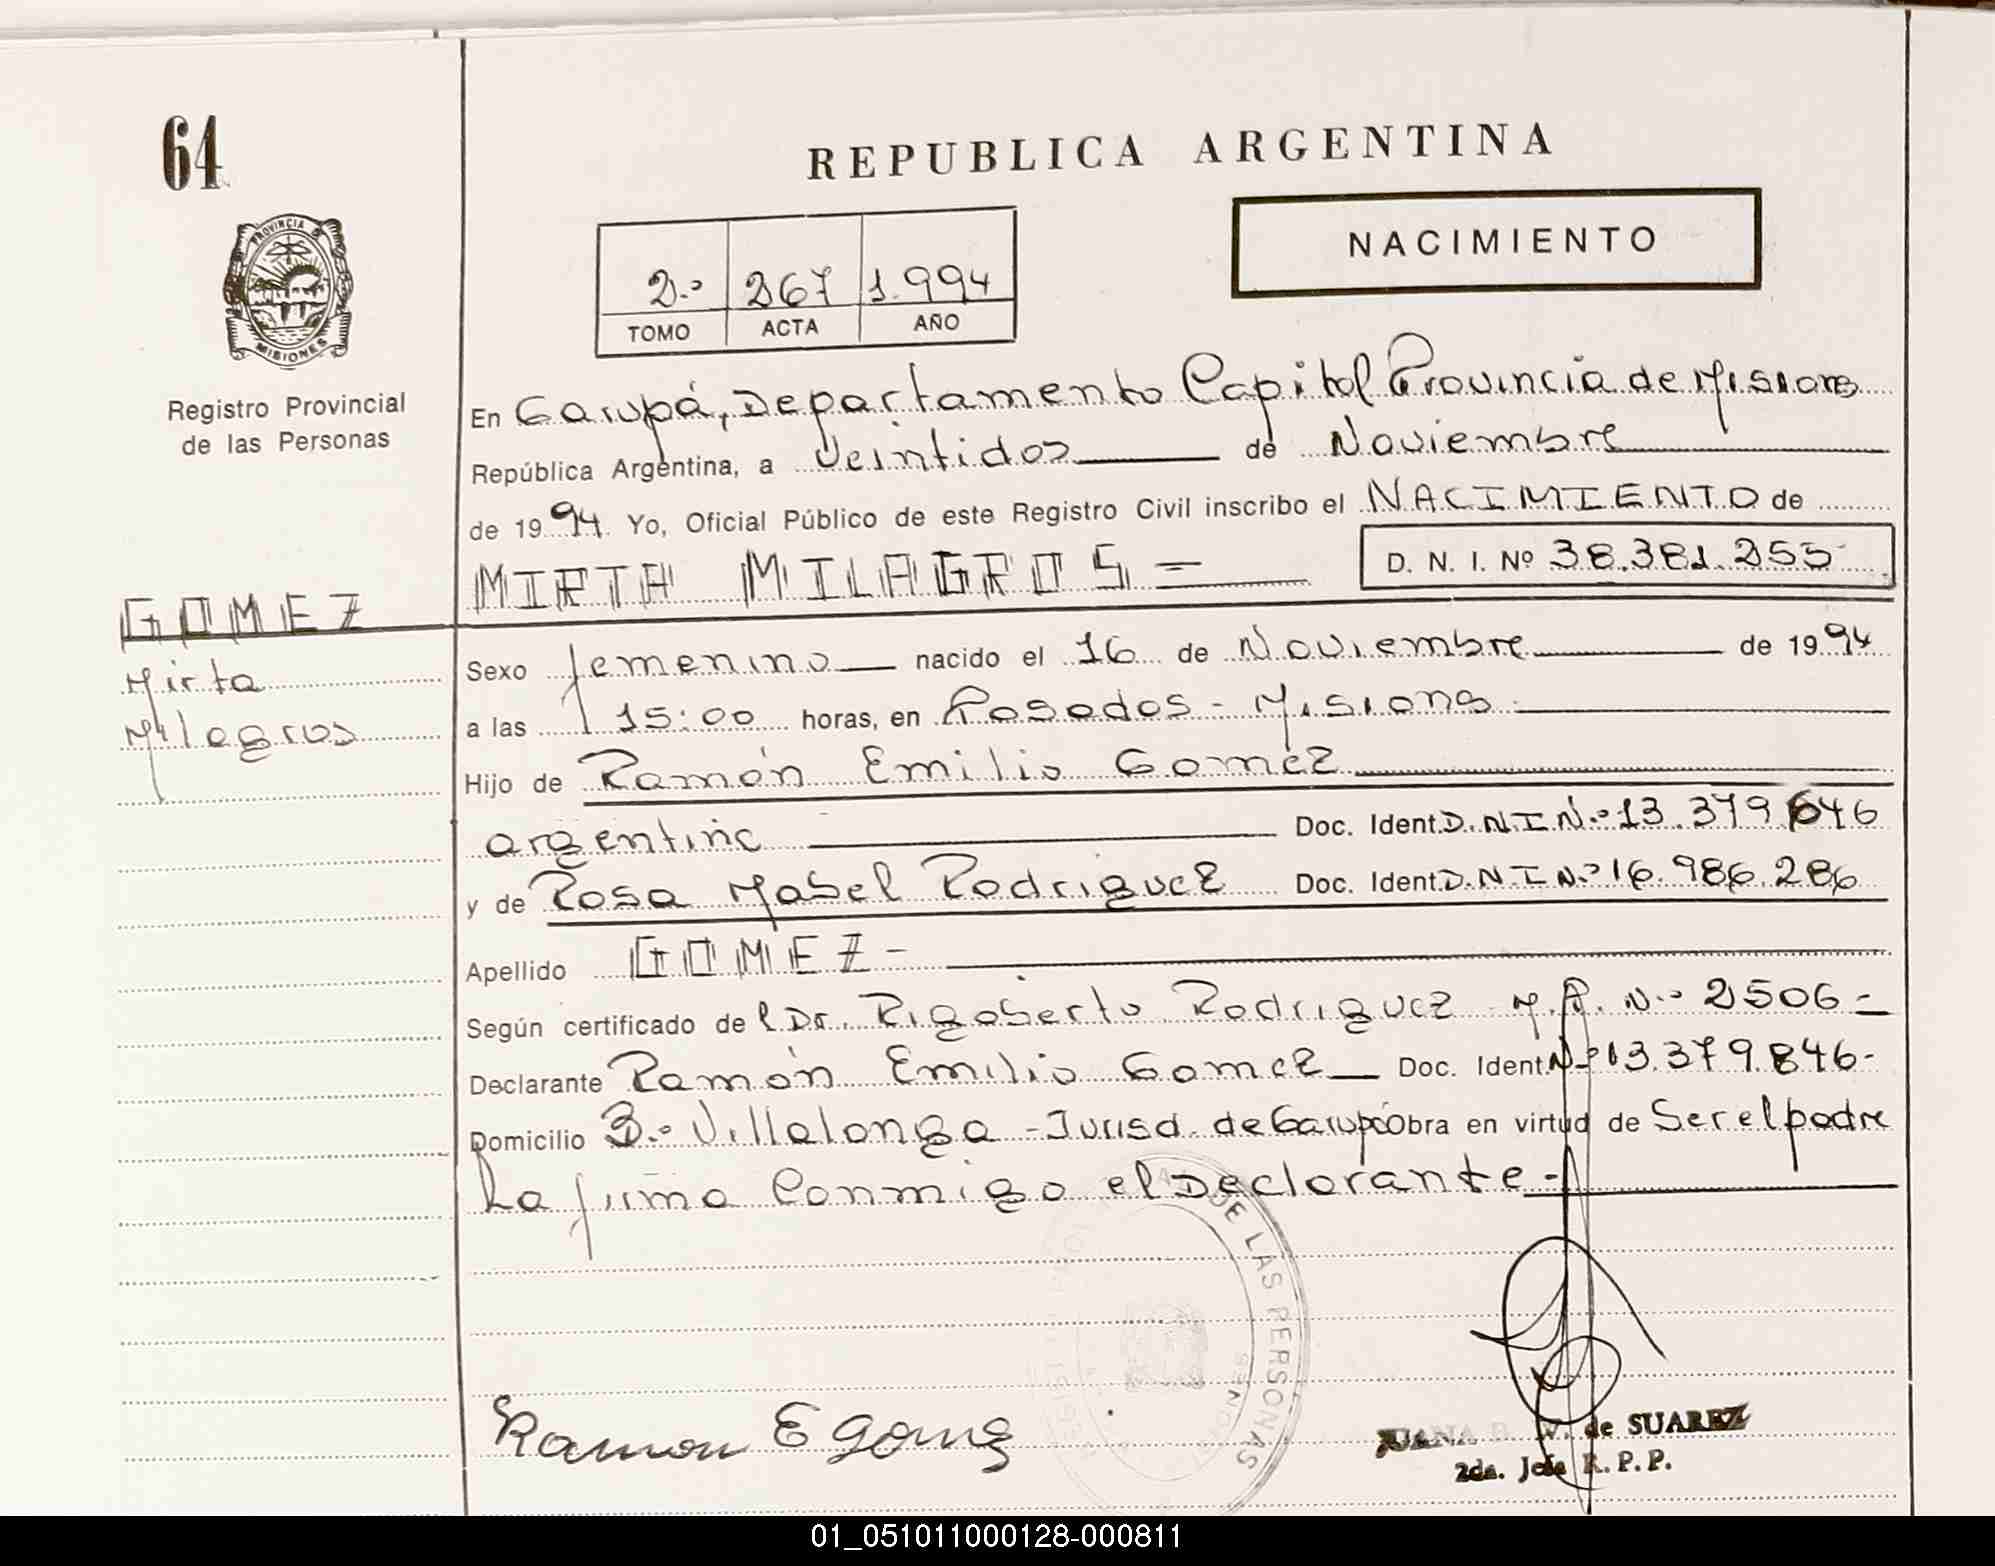 64
REPUBLICA ARGENTINA
PROVINCIA DE
MISIONES
Registro Provincial
de las Personas
2.º 267 1.994
TOMO ACTA AÑO
NACIMIENTO
En Garupá, Departamento Capital Provincia de Misiones
República Argentina, a Veintidos de Noviembre
de 1994. Yo, Oficial Público de este Registro Civil inscribo el NACIMIENTO de
MIRTA MILAGROS = D. N. I. Nº 38.381.255
GOMEZ
Mirta
Milagros
Sexo femenino nacido el 16 de Noviembre de 1994
a las 15:00 horas, en Posadas - Misiones
Hijo de Ramón Emilio Gomez
argentino Doc. Ident. D.N.I.N.º 13.379.646
y de Rosa Mabel Rodriguez Doc. Ident. D.N.I.N.º 16.986.286
Apellido GOMEZ-
Según certificado del Dr. Rigoberto Rodriguez M.P. N.º 2506=
Declarante Ramón Emilio Gomez Doc. Ident. Nº 13.379.846-
Domicilio B.º Villalonga - Jurisd. de Garupá Obra en virtud de Ser el padre
La firma Conmigo el Declarante-
DE LAS PERSONAS
MISIONES
Ramon E Gomez
JUANA de SUAREZ
2da. Jefe R. P. P.
01_051011000128-000811